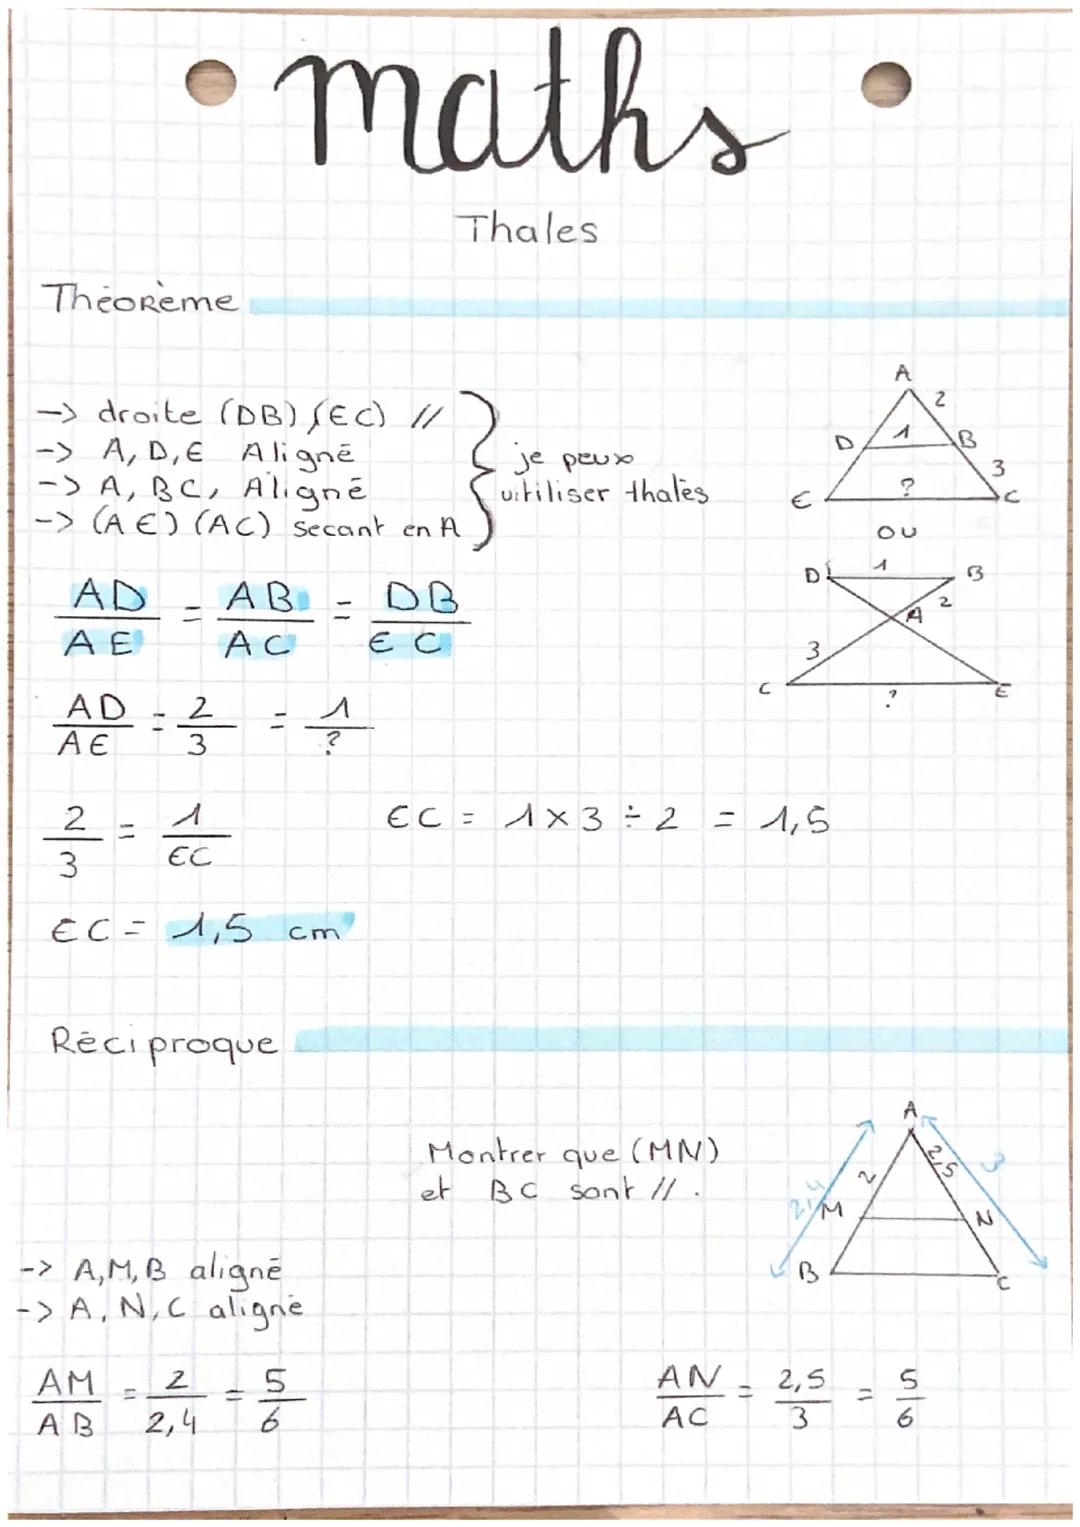 maths
Thales
Théorème
-> droite (DB) (EC) //
-> A, D, E Aligné
-> A, BC, Aligné
-> (AE) (AC) secant en A
je peux
uitiliser thalès
A
2
D 1 B
3
E ? C
ou
D 1 B
2
A
3
C ? E
AD/AE = AB/AC = DB/EC
AD/AE = 2/3 = 1/?
2/3 = 1/EC
EC = 1 x 3 ÷ 2 = 1,5
EC = 1,5 cm
Réciproque
Montrer que (MN)
et BC sont // .
A
2,4 2 2,5 3
M N
B C
-> A, M, B aligné
-> A, N, C aligné
AM/AB = 2/2,4 = 5/6
AN/AC = 2,5/3 = 5/6